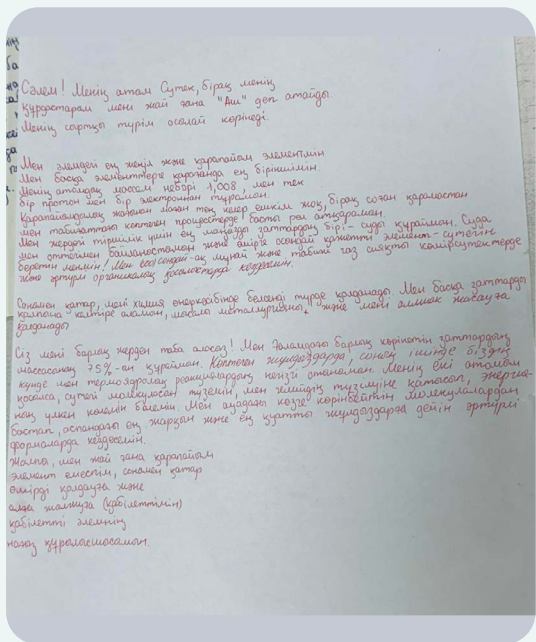 Сәлем! Менің атам Сутек, бірақ менің
құрдастарам мені жай ғана "Аш" деп атайды.
Менің сыртқы түрім осылай көрінеді.
Мен әлемдегі ең жеңіл және қарапайым элементпін
Мен басқа элементтерге қарағанда ең біріншімін.
Менің атомдық массам небәрі 1,008, мен тек
бір протон мен бір электроннан тұрамын.
Қарапайымдылық жағынан маған тең келер ешкім жоқ, бірақ соған қарамастан
мен табиғаттағы көптеген процестерде басты рөл атқарамын.
Мен жердегі тіршілік үшін ең маңызды заттардың бірі - суды құраймын. Суда
мен оттегімен байланыстамын және өмірге осындай қажетті элемент-сутегін
беретін менмін! Мен сондай-ақ мұнай және табиғи газ сияқты көмірсутектерде
және әртүрлі органикалық қосылыстарда кездесемін.
Сонымен қатар, мені химия өнеркәсібінде белсенді түрде қолданады. Мен басқа заттарды
қалпына келтіре аламын, мысалы металлургияны, және мені аммиак жасауға
қолданады
Сіз мені барлық жерден таба аласыз! Мен Ғаламдағы барлық көрінетін заттардың
массасының 75%-ын құраймын. Көптеген жұлдыздарда, соның ішінде біздің
күнде мен термоядролық реакциялардың негізгі отынымын. Менің екі атомым
қосылса, сутегі молекуласын түземін, мен жұптың түзіміне қатысып, энергия-
ның үлкен көлемін бөлемін. Мен ауадағы көзге көрінбейтін молекулалардан
бастап, аспандағы ең жарқын және ең қуатты жұлдыздарға дейін әртүрлі
формаларда кездесемін.
Жалпы, мен жай ғана қарапайым
элемент емеспін, сонымен қатар
өмірді қолдауға және
алға жылжуға (қабілеттімін)
қабілетті әлемнің
нағыз құрылысшысымын.